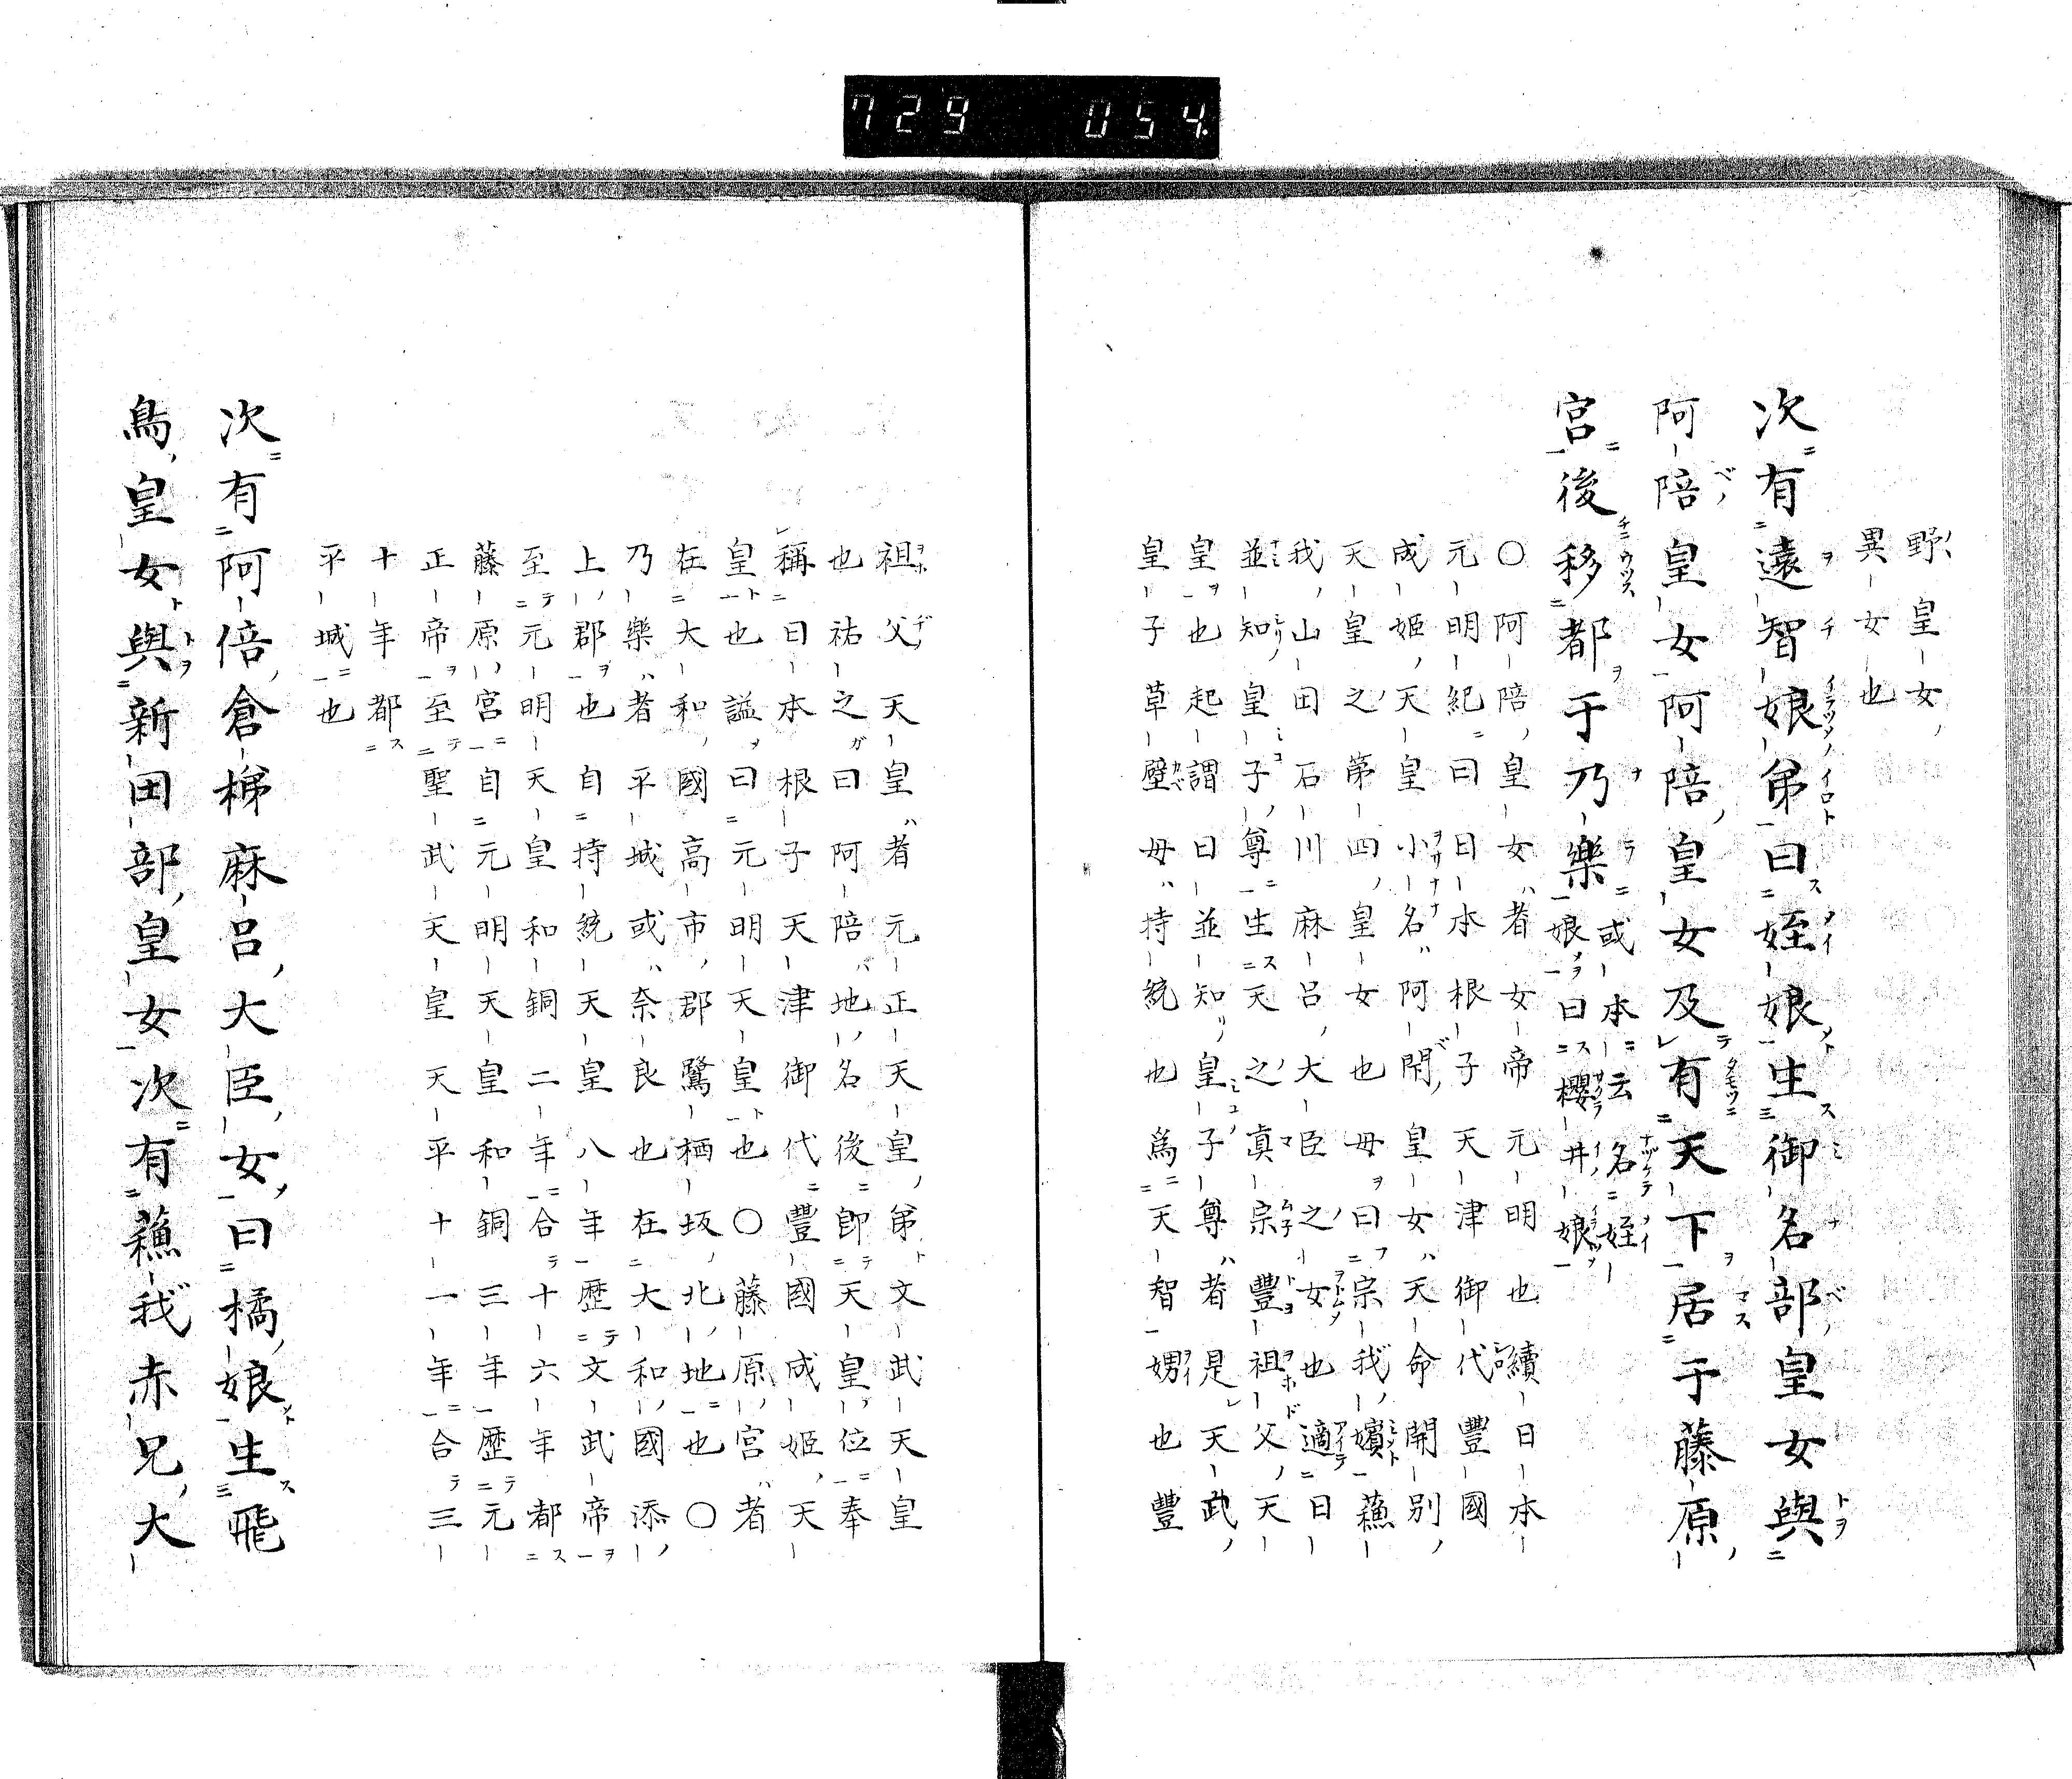 729 054.
野皇女
異女也
次有遠智娘弟曰姪娘生御名部皇女與
阿陪皇女阿陪皇女及有天下居于藤原
宮後移都于乃樂
或本云名姪
娘曰櫻井娘
〇阿陪皇女者女帝元明也續日本
元明紀曰日本根子天津御代豐國
成姬天皇小名阿閇皇女天命開別
天皇之第四皇女也母曰宗我嬪蘓
我山田石川麻呂大臣之女也適日
並知皇子尊生天之真宗豐祖父天
皇也起謂日並知皇子尊者是天武
皇子草壁母持統也為天智娚也豐
祖父天皇者元正天皇弟文武天皇
也祐之曰阿陪地名後即天皇位奉
稱曰本根子天津御代豐國成姬天
皇也謚曰元明天皇也〇藤原宮者
在大和國高市郡鷺栖坂北地也〇
乃樂者平城或奈良也在大和國添
上郡也自持統天皇八年歷文武帝
至元明天皇和銅二年合十六年都
藤原宮自元明天皇和銅三年歷元
正帝至聖武天皇天平十一年合三
十年都
平城也
次有阿倍倉梯麻呂大臣女曰橘娘生飛
鳥皇女與新田部皇女次有蘓我赤兄大